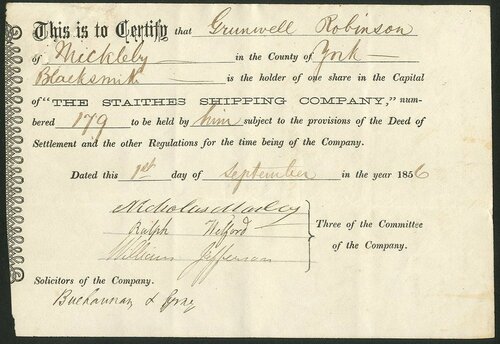 This is to Certify that Grunwell Robinson
of Mickleby in the County of York
Blacksmith is the holder of one share in the Capital
of "THE STAITHES SHIPPING COMPANY," num-
bered 179 to be held by him subject to the provisions of the Deed of
Settlement and the other Regulations for the time being of the Company.
Dated this 1st day of September in the year 1856
Nicholas
Ralph Welford
William Jefferson
Three of the Committee
of the Company.
Solicitors of the Company.
Buchannan & Gray